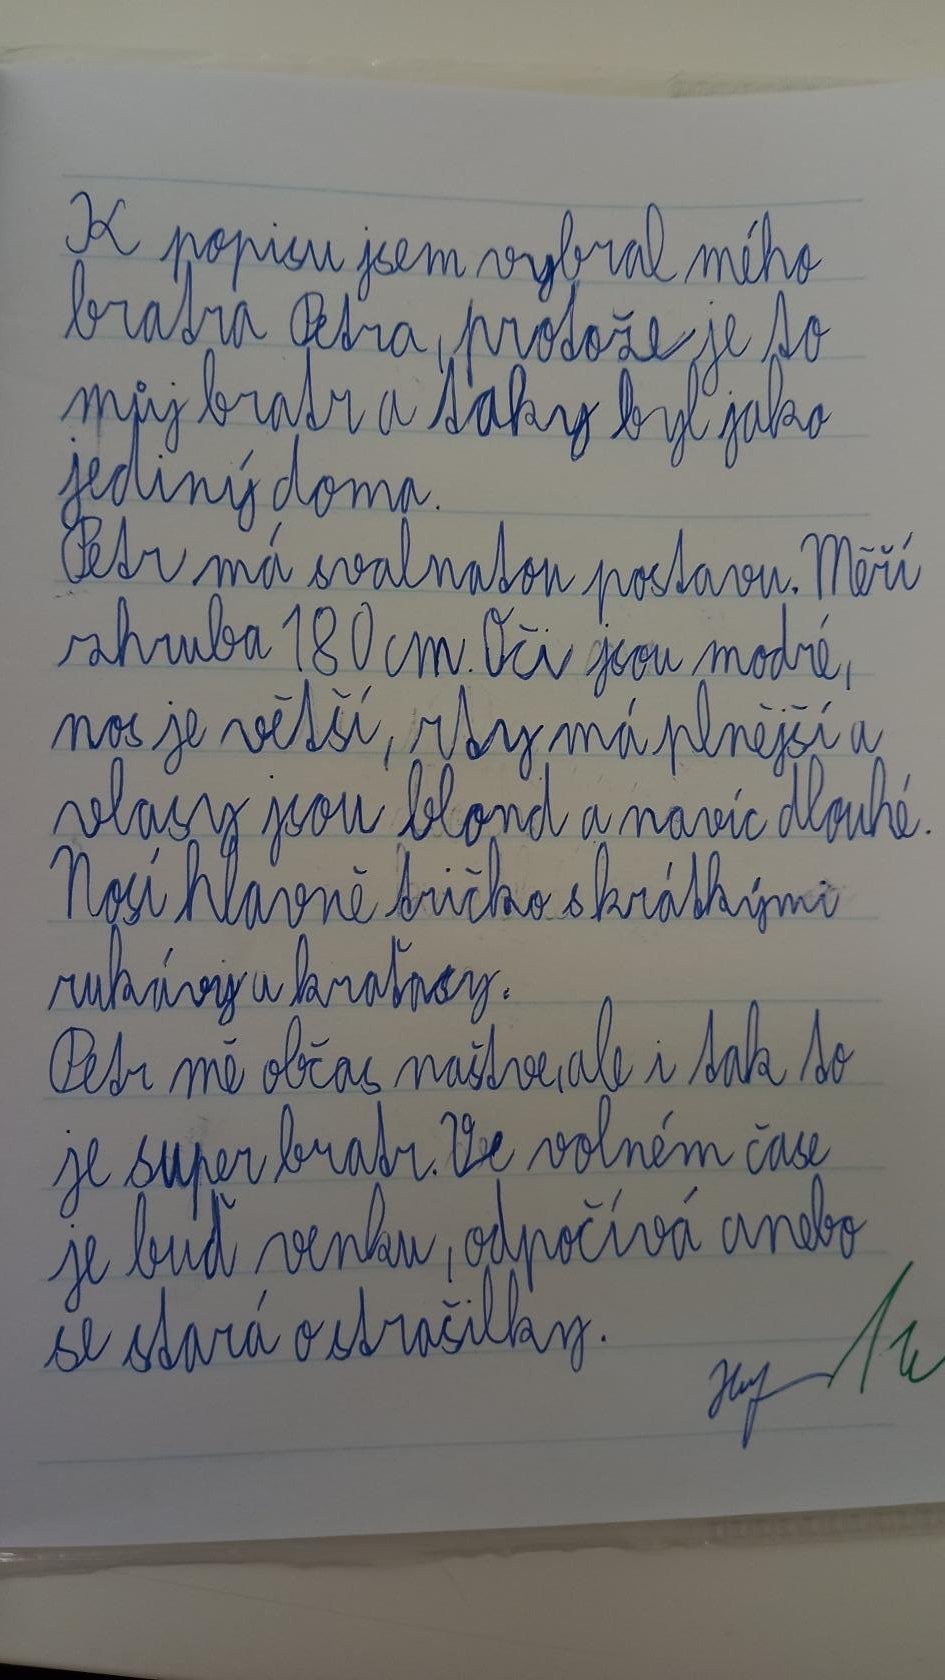 K popisu jsem vybral mého
bratra Petra, protože je to
můj bratr a taky byl jako
jediný doma.
Petr má svalnatou postavu. Měří
zhruba 180 cm. Oči jsou modré,
nos je větší, rty má plnější a
vlasy jsou blond a navíc dlouhé.
Nosí hlavně tričko s krátkými
rukávy a kraťasy.
Petr mě občas naštve, ale i tak to
je super bratr. Ve volném čase
je buď venku, odpočívá anebo
se stará o strašilky.